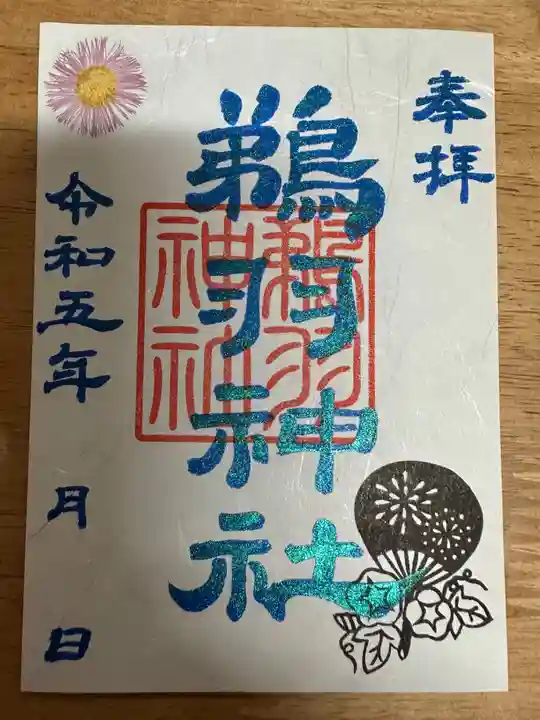 奉拝
鵜羽神社
鵜羽神社
令和五年 月 日